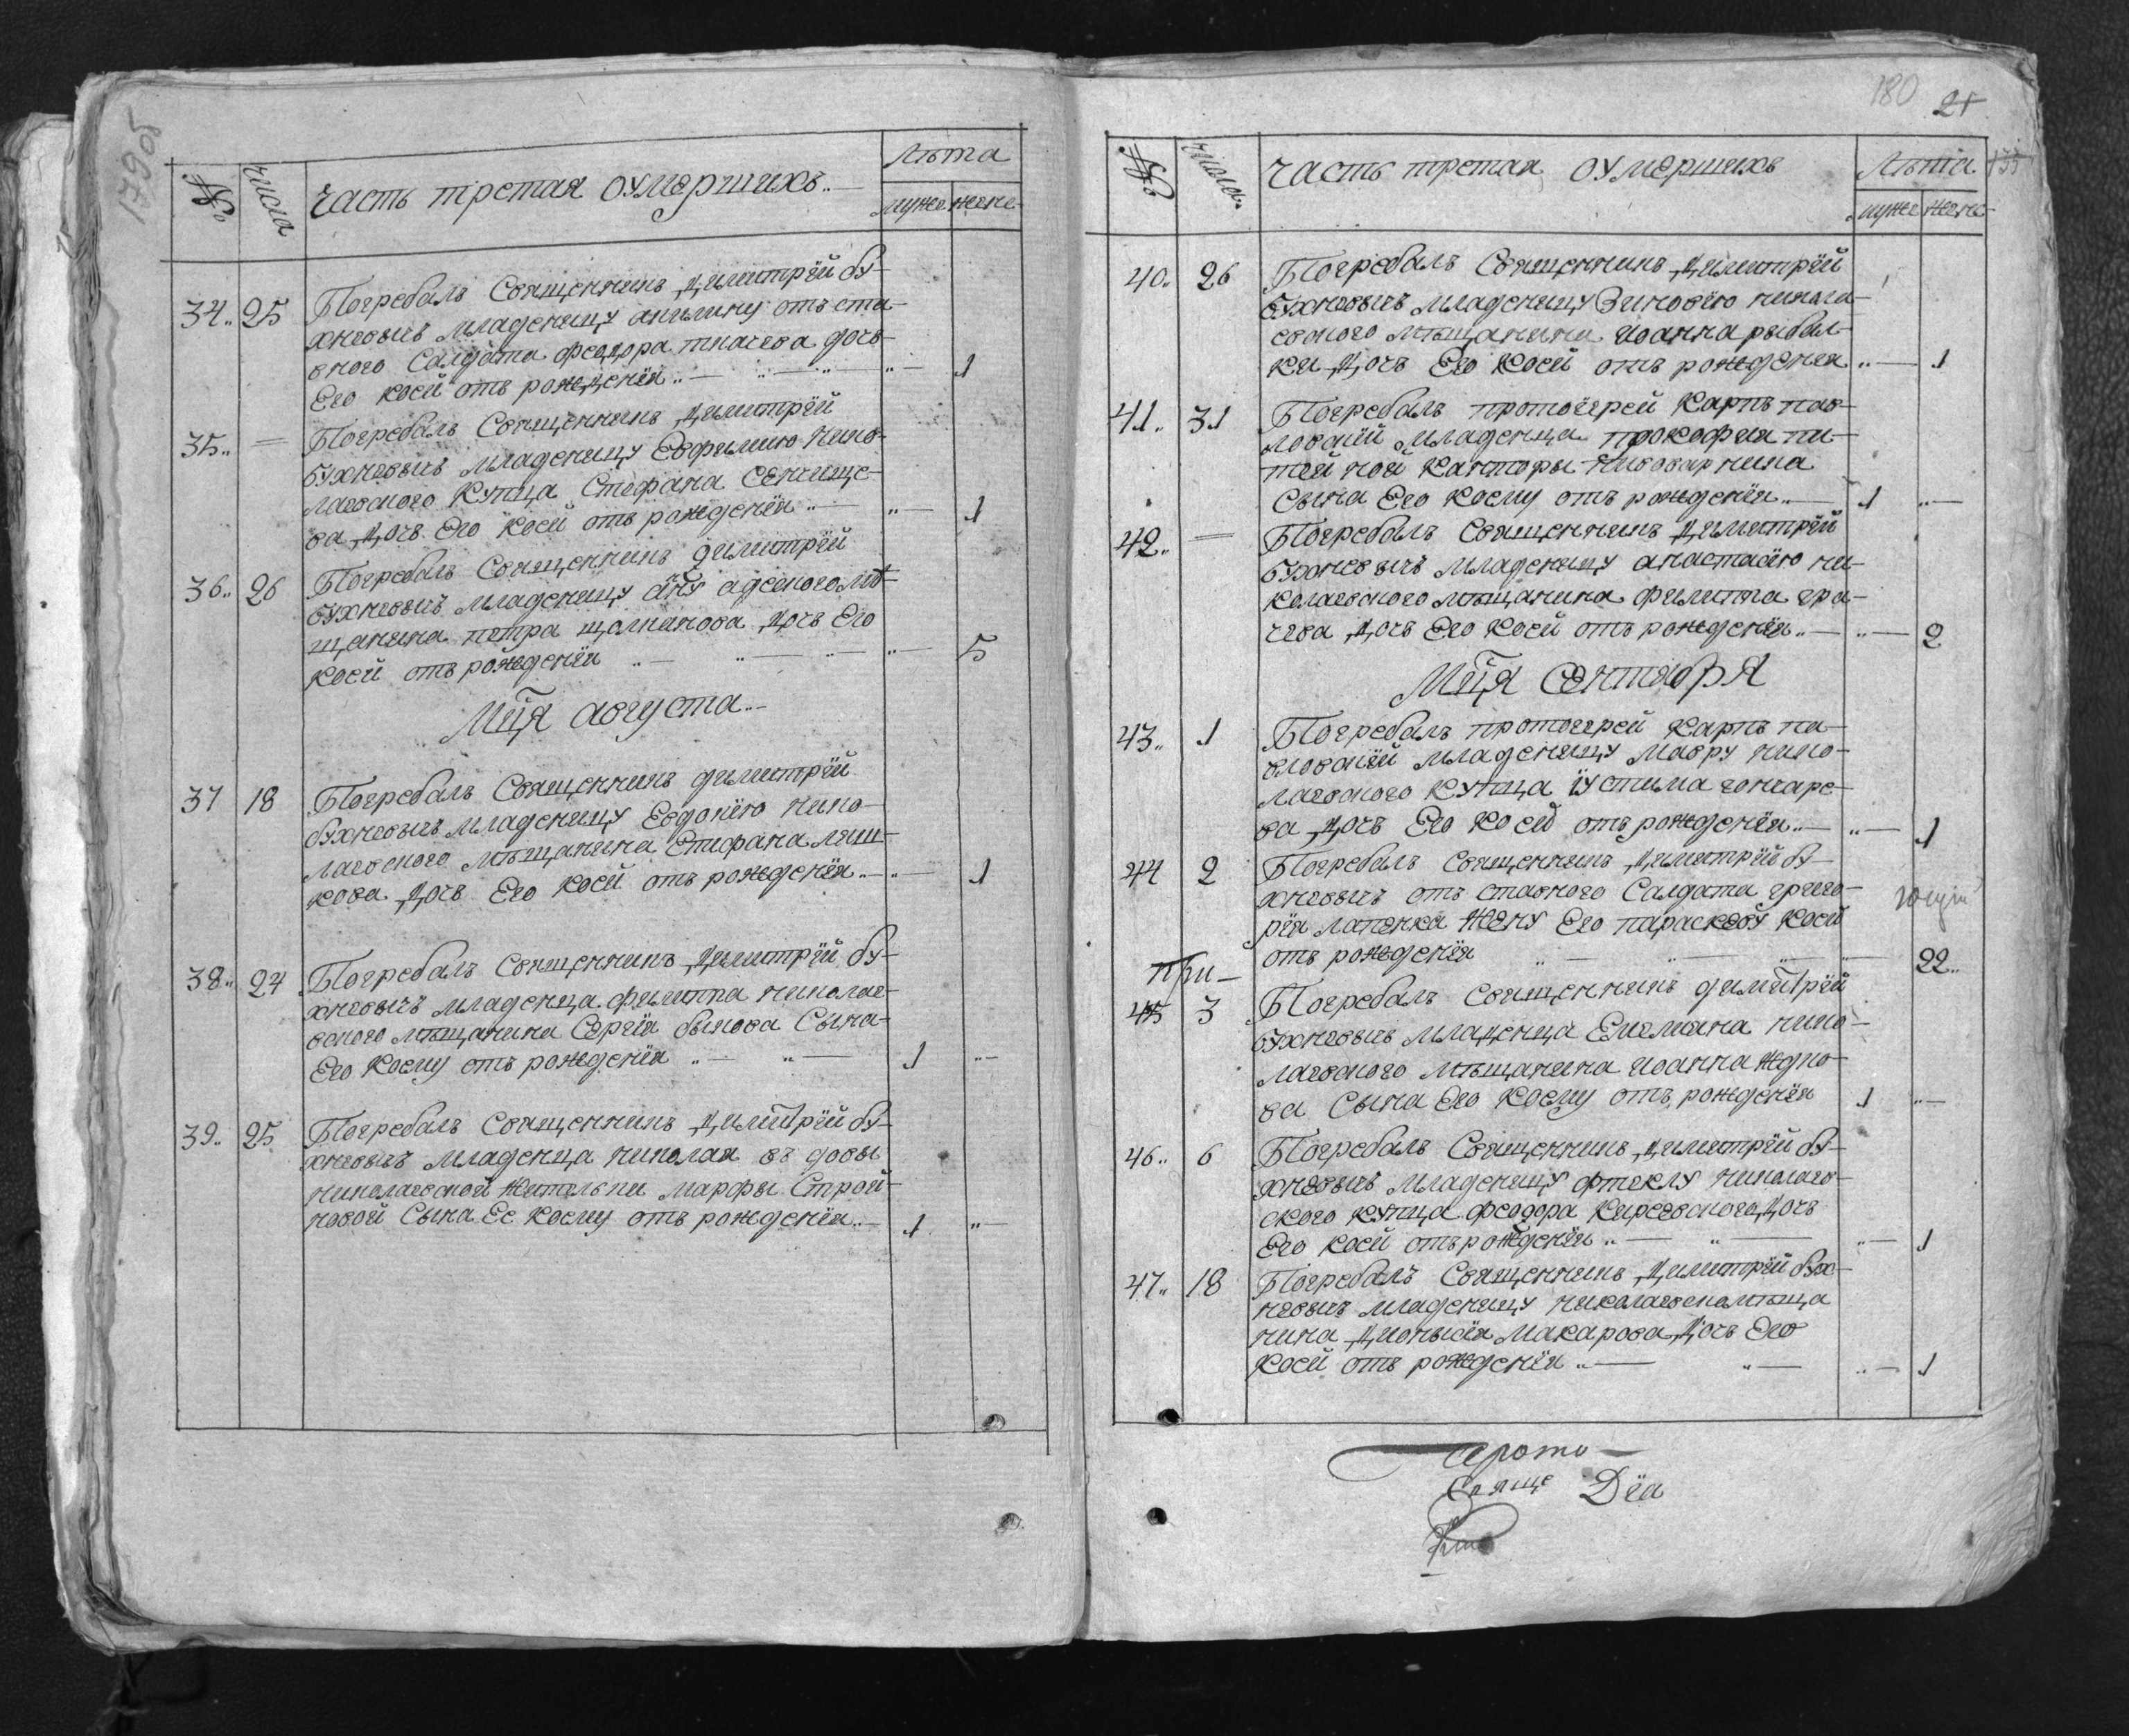 179об
№
числа
Часть третая оумершихъ
лѣта
мужс женс
34 25 Погребалъ Священникъ Димитрїй Бу-
хнѣвичъ младеницу акилину отъста-
вного Салдата Феодора ткачева дочь
Его коей отъ рожденїя 1
35 — Погребалъ Священникъ Димитрїй
Бухневичъ младеницу Евфимию Нико-
лаевского Купца Стефана Сенище-
ва Дочь Его коей отъ рожденїя 1
36 26 Погребалъ Священникъ Димитрїй
Бухневичъ младеницу анну адеского мѣ-
щанина петра щолкинова Дочь Его
коей отъ рожденїя 5
Мца августа
37 18 Погребалъ Священникъ Димитрїй
Бухневичъ младеницу Евдокїю Нико-
лаевского мѣщанина Стефана
кова Дочь Его коей отъ рожденїя 1
38 24 Погребалъ Священникъ Димитрїй Бу-
хневичъ младенца Филиппа николае-
вского мѣщанина Сергїя бынова Сына
Его коему отъ рожденїя 1
39 25 Погребалъ Священникъ Димитрїй Бу-
хневичъ младенца николая вдовы
николаевской жительки Марфы Строй-
новой Сына Ее коему отъ рожденїя 1
180 21
№
числа
Часть третая оумершихъ
лѣта
мужс женс
40 26 Погребалъ Священникъ Димитрїй
Бухневичъ младеницу Зиновїю никола-
евского мѣщанина иоанна рыбал-
ки Дочь Его коей отъ рожденїя 1
41 31 Погребалъ протоїерей Карпъ пав-
ловскїй младенца прокофия пи-
тейной канторы пивоварника
Сына Его коему отъ рожденїя 1
42 — Погребалъ Священникъ Димитрїй
Бухневичъ младеницу анастасїю ни-
колаевского мѣщанина филиппа гра-
чева Дочь Его коей отъ рожденїя 2
Мца Сентября
43 1 Погребалъ протоиерей Карпъ па-
вловскїй младеницу Мавру нико-
лаевского Купца їустима гончаре-
ва Дочь Его коей отъ рожденїя 1
44 2 Погребалъ Священникъ Димитрїй Бу-
хневичъ отъставного Салдата григо-
рїя лапенка жену Его параскеву коей
отъ рожденїя 22
При-
45 3 Погребалъ Священникъ Димитрїй
Бухневичъ младенца Емелиана нико-
лаевского мѣщанина иоанна
ва Сына Его коему отъ рожденїя 1
46 6 Погребалъ Священникъ Димитрїй Бу-
хневичъ младеницу фтеклу николаев-
ского купца феодора Киревского Дочь
Его коей отъ рожденїя 1
47 18 Погребалъ Священникъ Димитрїй Бух-
невичъ младеницу николаевскомѣща
нина Дионысїя Макарова Дочь Его
коей отъ рожденїя 1
прото-
Свяще Дїа